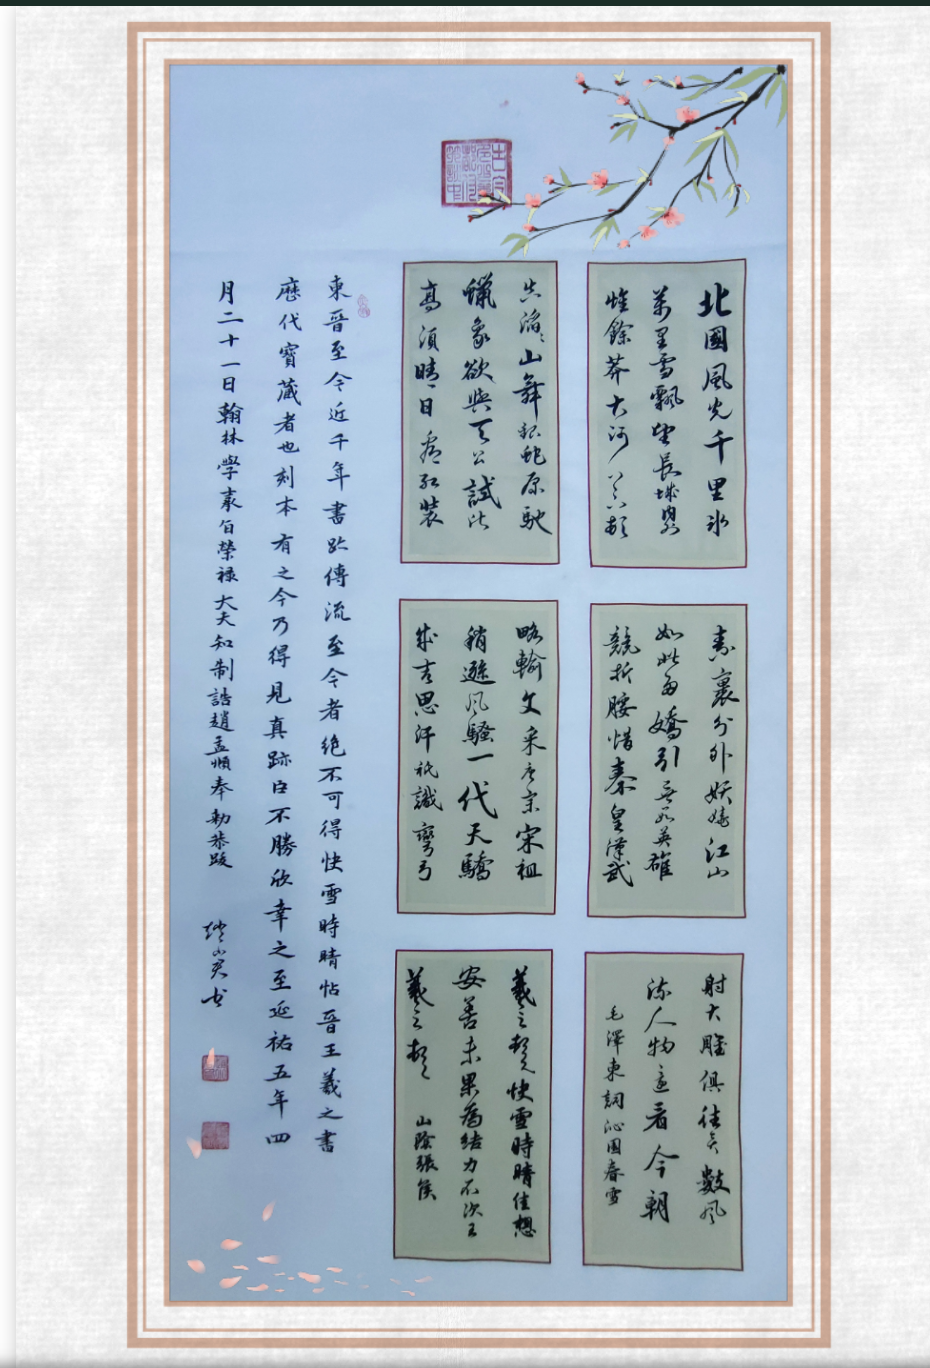 北國風光千里冰
萬里雪飄望長城內外
惟餘莽大河上下頓
失滔々山舞銀蛇原馳
蠟象欲與天公試比
高須晴日看紅裝
素裹分外妖嬈江山
如此多嬌引無數英雄
競折腰惜秦皇漢武
略輸文采唐宗宋祖
稍遜風騷一代天驕
成吉思汗祇識彎弓
射大雕俱往矣數風
流人物還看今朝
毛澤東詞沁園春雪
羲之頓首快雪時晴佳想
安善未果為結力不次王
羲之頓首 山陰張侯
東晉至今近千年書跡傳流至今者絕不可得快雪時晴帖晉王羲之書
歷代寶藏者也刻本有之今乃得見真跡臣不勝欣幸之至延祐五年四
月二十一日翰林學承旨榮祿大夫知制誥趙孟頫奉勅恭跋